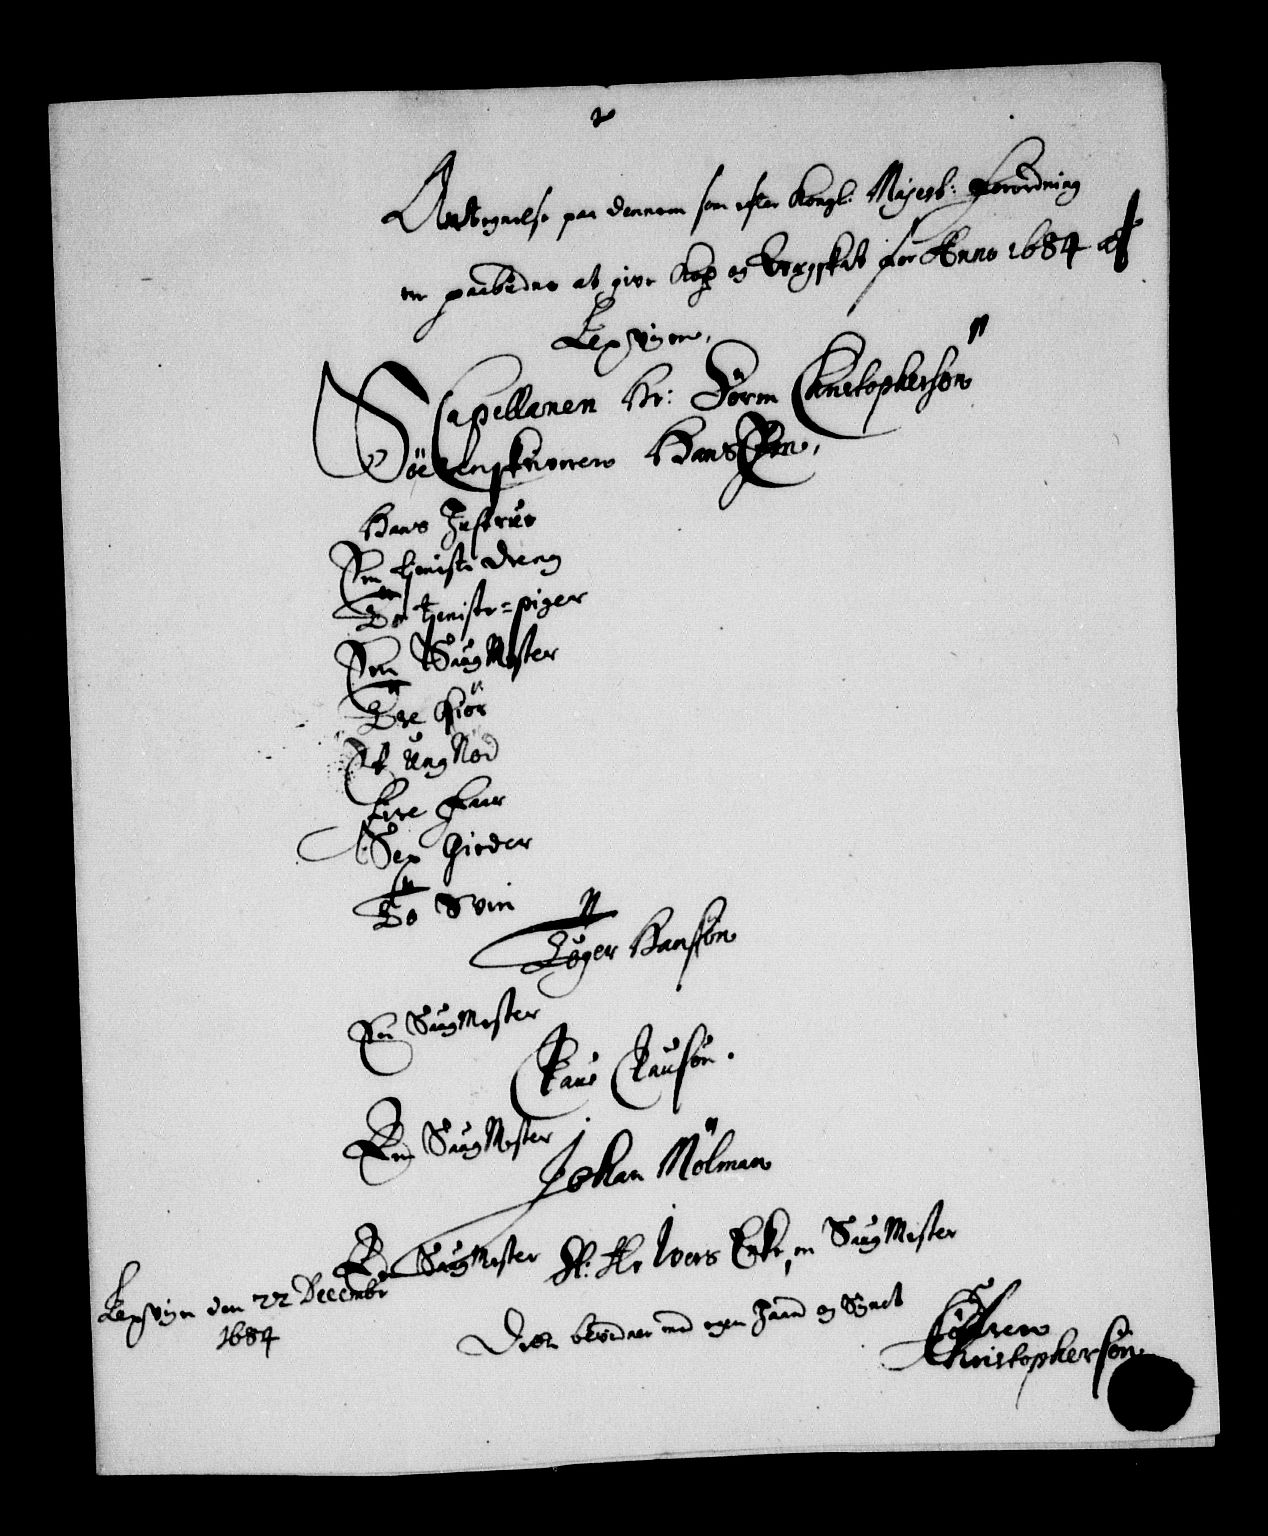 Antegnelse paa dennem som efter Kongl: Mayest: forordning
er paabuden at give Kop og qvegskat for Anno 1684 af
Lexvigen,
Capellanen Hr: Sörren Christophersön
Hans
Hans Hustrue
En tieniste dreng
To tieniste=piger
En Saug Mester
Tre Kiör
Et Ung Nöd
Fire Faar
Sex Gieder
To Svin
Töger Hansön
En Saug Mester
Claus Clausön.
En Saug Mester
Johan Mölman
En Saug Mester
Sl: Hr Ivers Enke, en Saug Mester
Lexvigen den 22 Decembr
1684
Dette bekrefter med egen Haand og Signet
Sörren
Christophersön